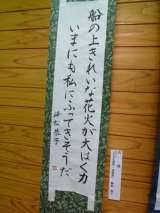 船の上きれいな花火が大はく力
いまにも私にふってきそうだ